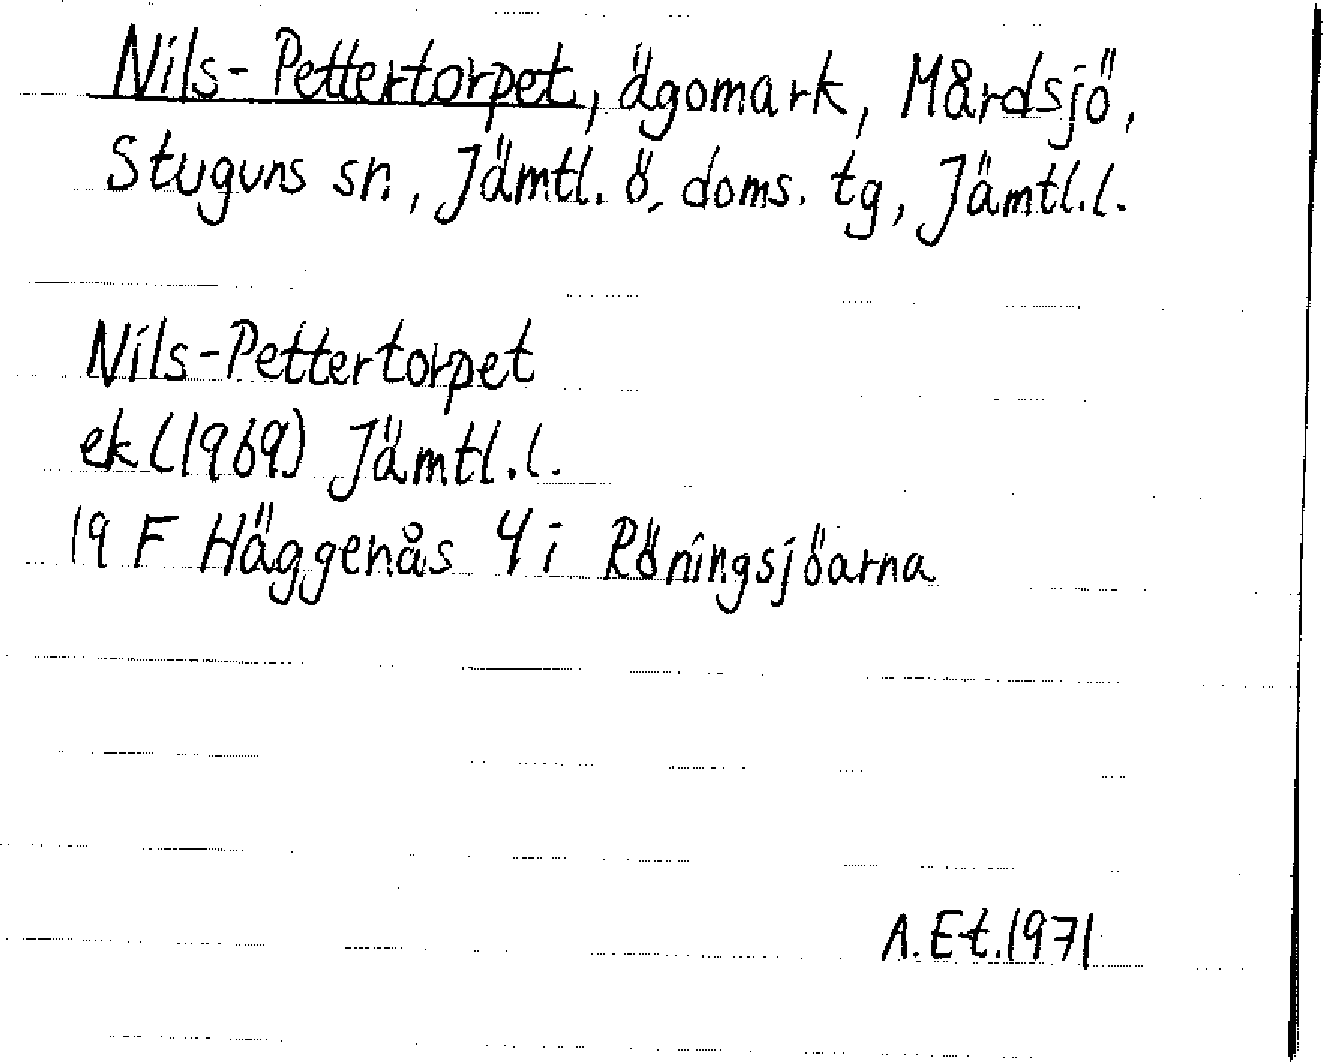 Nils-Pettertorpet, ägomark, Mårdsjö,
Stuguns sn, Jämtl. ö. doms. tg, Jämtl.l.
Nils-Pettertorpet
ek (1969) Jämtl.l.
19 F Häggenås 4 i Röningsjöarna
A. Et. 1971